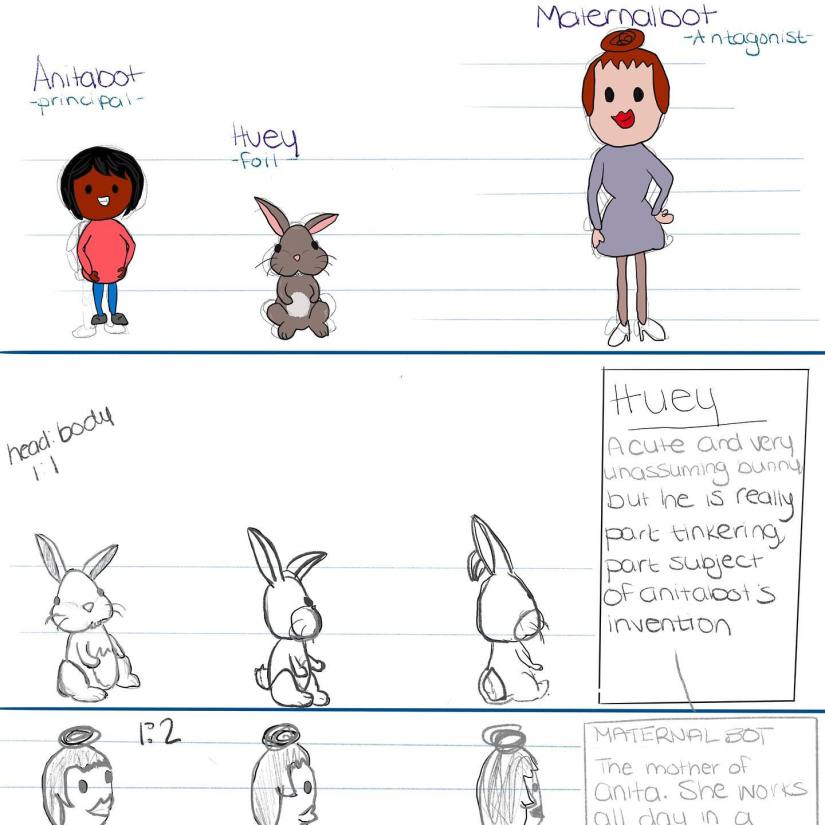 Maternalbot
-Antagonist-
Anitabot
-principal-
Huey
-Foil-
head:body
1:1
Huey
A cute and very
unassuming bunny
but he is really
part tinkering,
part subject
of anitabot's
invention
1:2
MATERNAL BOT
The mother of
anita. She works
all day in a